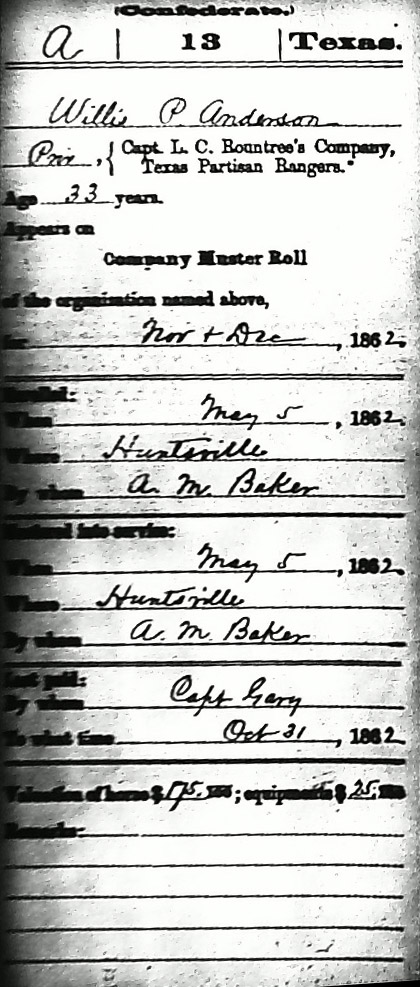 (Confederate.)
A | 13 | Texas.
Willis P Anderson
Priv, { Capt. L. C. Rountree's Company,
Texas Partisan Rangers.*
Age 33 years.
Appears on
Company Muster Roll
of the organization named above,
for Nov + Dec, 1862.
Enlisted:
When May 5, 1862.
Where Huntsville
By whom A. M. Baker
Mustered into service:
When May 5, 1862.
Where Huntsville
By whom A. M. Baker
Last paid:
By whom Capt Gary
To what time Oct 31, 1862.
Valuation of horse $175.; equipments $25.
Remarks: